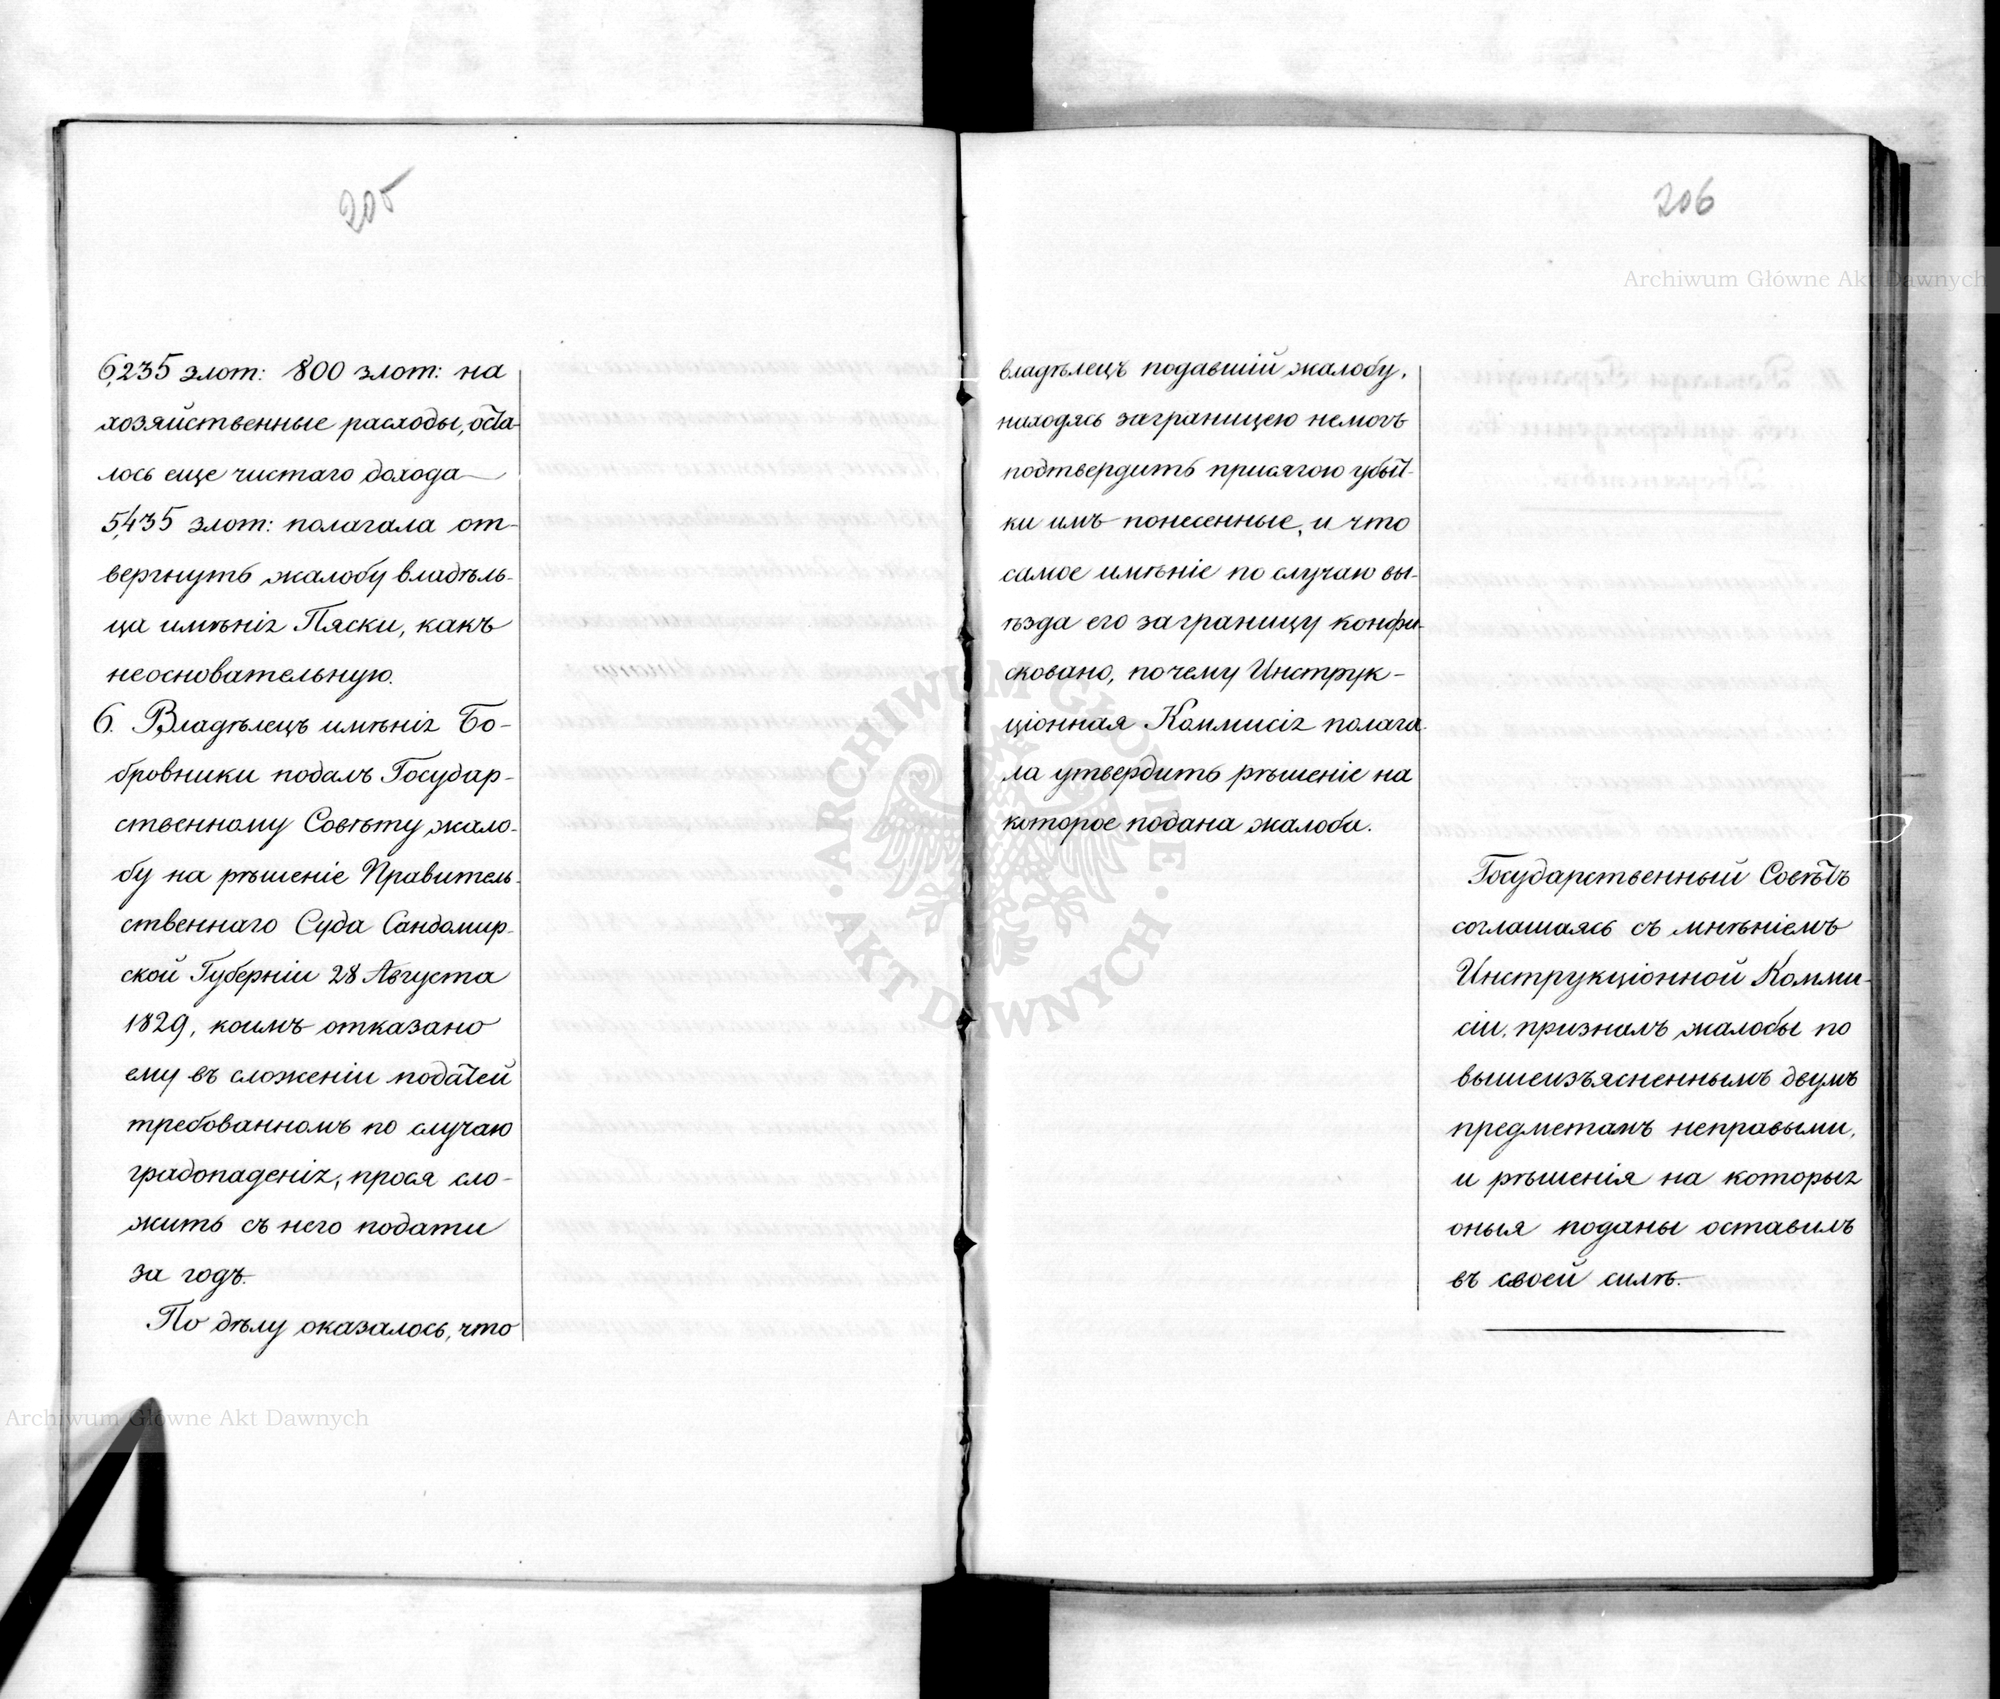 205
6,235 злот: 800 злот: на
хозяйственные расходы, оста-
лось еще чистаго дохода
5,435 злот: полагала от-
вергнуть жалобу владѣль-
ца имѣнія Пяски, какъ
неосновательную.
6. Владѣлецъ имѣнія Бо-
бровники подалъ Государ-
ственному Совѣту жало-
бу на рѣшеніе Правитель-
ственнаго Суда Сандомир-
ской Губерніи 28 Августа
1829, коимъ отказано
ему въ сложеніи податей
требованномъ по случаю
градопаденія, прося сло-
жить съ него подати
за годъ.
По дѣлу оказалось, что
206
владѣлецъ подавшій жалобу,
находясь заграницею немогъ
подтвердить присягою убыт-
ки имъ понесенные, и что
самое имѣніе по случаю вы-
ѣзда его заграницу конфи-
сковано, почему Инструк-
ціонная Коммисія полага-
ла утвердить рѣшеніе на
которое подана жалоба.
Государственный Совѣтъ
соглашаясь съ мнѣніемъ
Инструкціонной Комми-
сіи, призналъ жалобы по
вышеизъясненнымъ двумъ
предметамъ неправыми,
и рѣшенія на которыя
оныя поданы оставилъ
въ своей силѣ.
Archiwum Główne Akt Dawnych
Archiwum Główne Akt Dawnych
· ARCHIWUM GŁÓWNE · AKT DAWNYCH